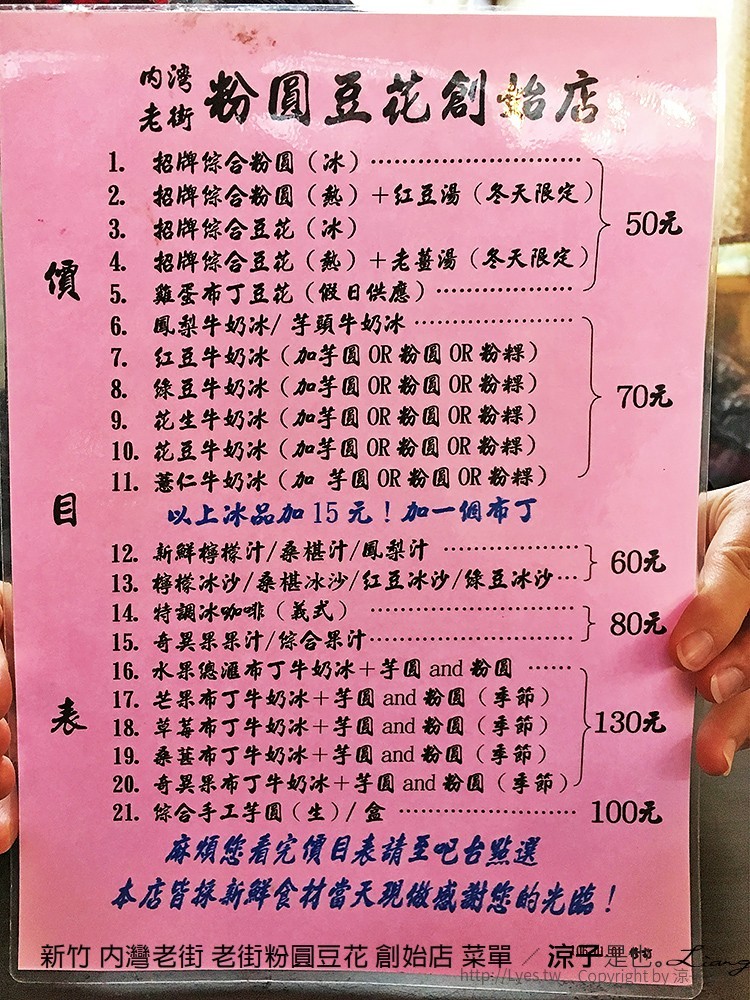 內灣老街 粉圓豆花創始店
價目表
1. 招牌綜合粉圓（冰）…………………………
2. 招牌綜合粉圓（熱）＋紅豆湯（冬天限定）
3. 招牌綜合豆花（冰）
50元
4. 招牌綜合豆花（熱）＋老薑湯（冬天限定）
5. 雞蛋布丁豆花（假日供應）………………
6. 鳳梨牛奶冰/ 芋頭牛奶冰 …………………
7. 紅豆牛奶冰（加芋圓 OR 粉圓 OR 粉粿）
8. 綠豆牛奶冰（加芋圓 OR 粉圓 OR 粉粿）
70元
9. 花生牛奶冰（加芋圓 OR 粉圓 OR 粉粿）
10. 花豆牛奶冰（加芋圓 OR 粉圓 OR 粉粿）
11. 薏仁牛奶冰（加 芋圓 OR 粉圓 OR 粉粿）
以上冰品加 15 元！加一個布丁
12. 新鮮檸檬汁/桑椹汁/鳳梨汁 ………………
60元
13. 檸檬冰沙/桑椹冰沙/紅豆冰沙/綠豆冰沙…
14. 特調冰咖啡（義式） ………………………
80元
15. 奇異果果汁/綜合果汁………………………
16. 水果總滙布丁牛奶冰＋芋圓 and 粉圓 ……
17. 芒果布丁牛奶冰＋芋圓 and 粉圓（季節）
18. 草莓布丁牛奶冰＋芋圓 and 粉圓（季節）
130元
19. 桑葚布丁牛奶冰＋芋圓 and 粉圓（季節）
20. 奇異果布丁牛奶冰＋芋圓 and 粉圓（季節）
21. 綜合手工芋圓（生）/ 盒 …………………… 100元
麻煩您看完價目表請至吧台點選
本店皆採新鮮食材當天現做感謝您的光臨！
新竹 內灣老街 老街粉圓豆花 創始店 菜單 ／ 涼子是也。Liang
http://Lyes.tw Copyright by 涼